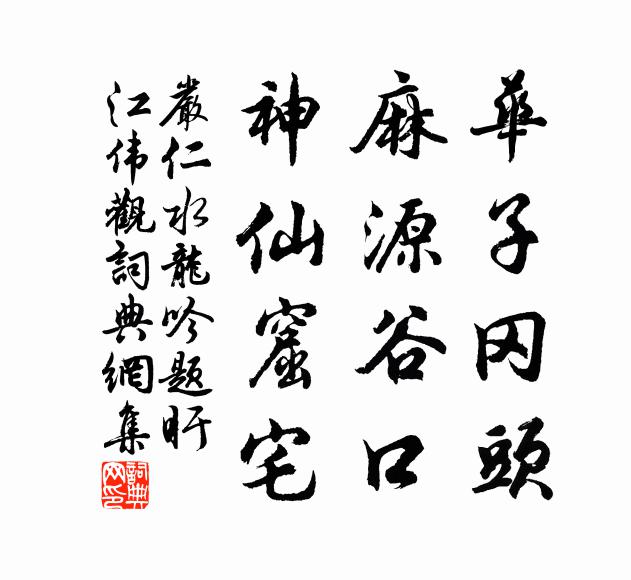 華子冈頭
麻源谷口
神仙窟宅
嚴仁水龍吟题盱
江伟觀詞典網集
詞典网印